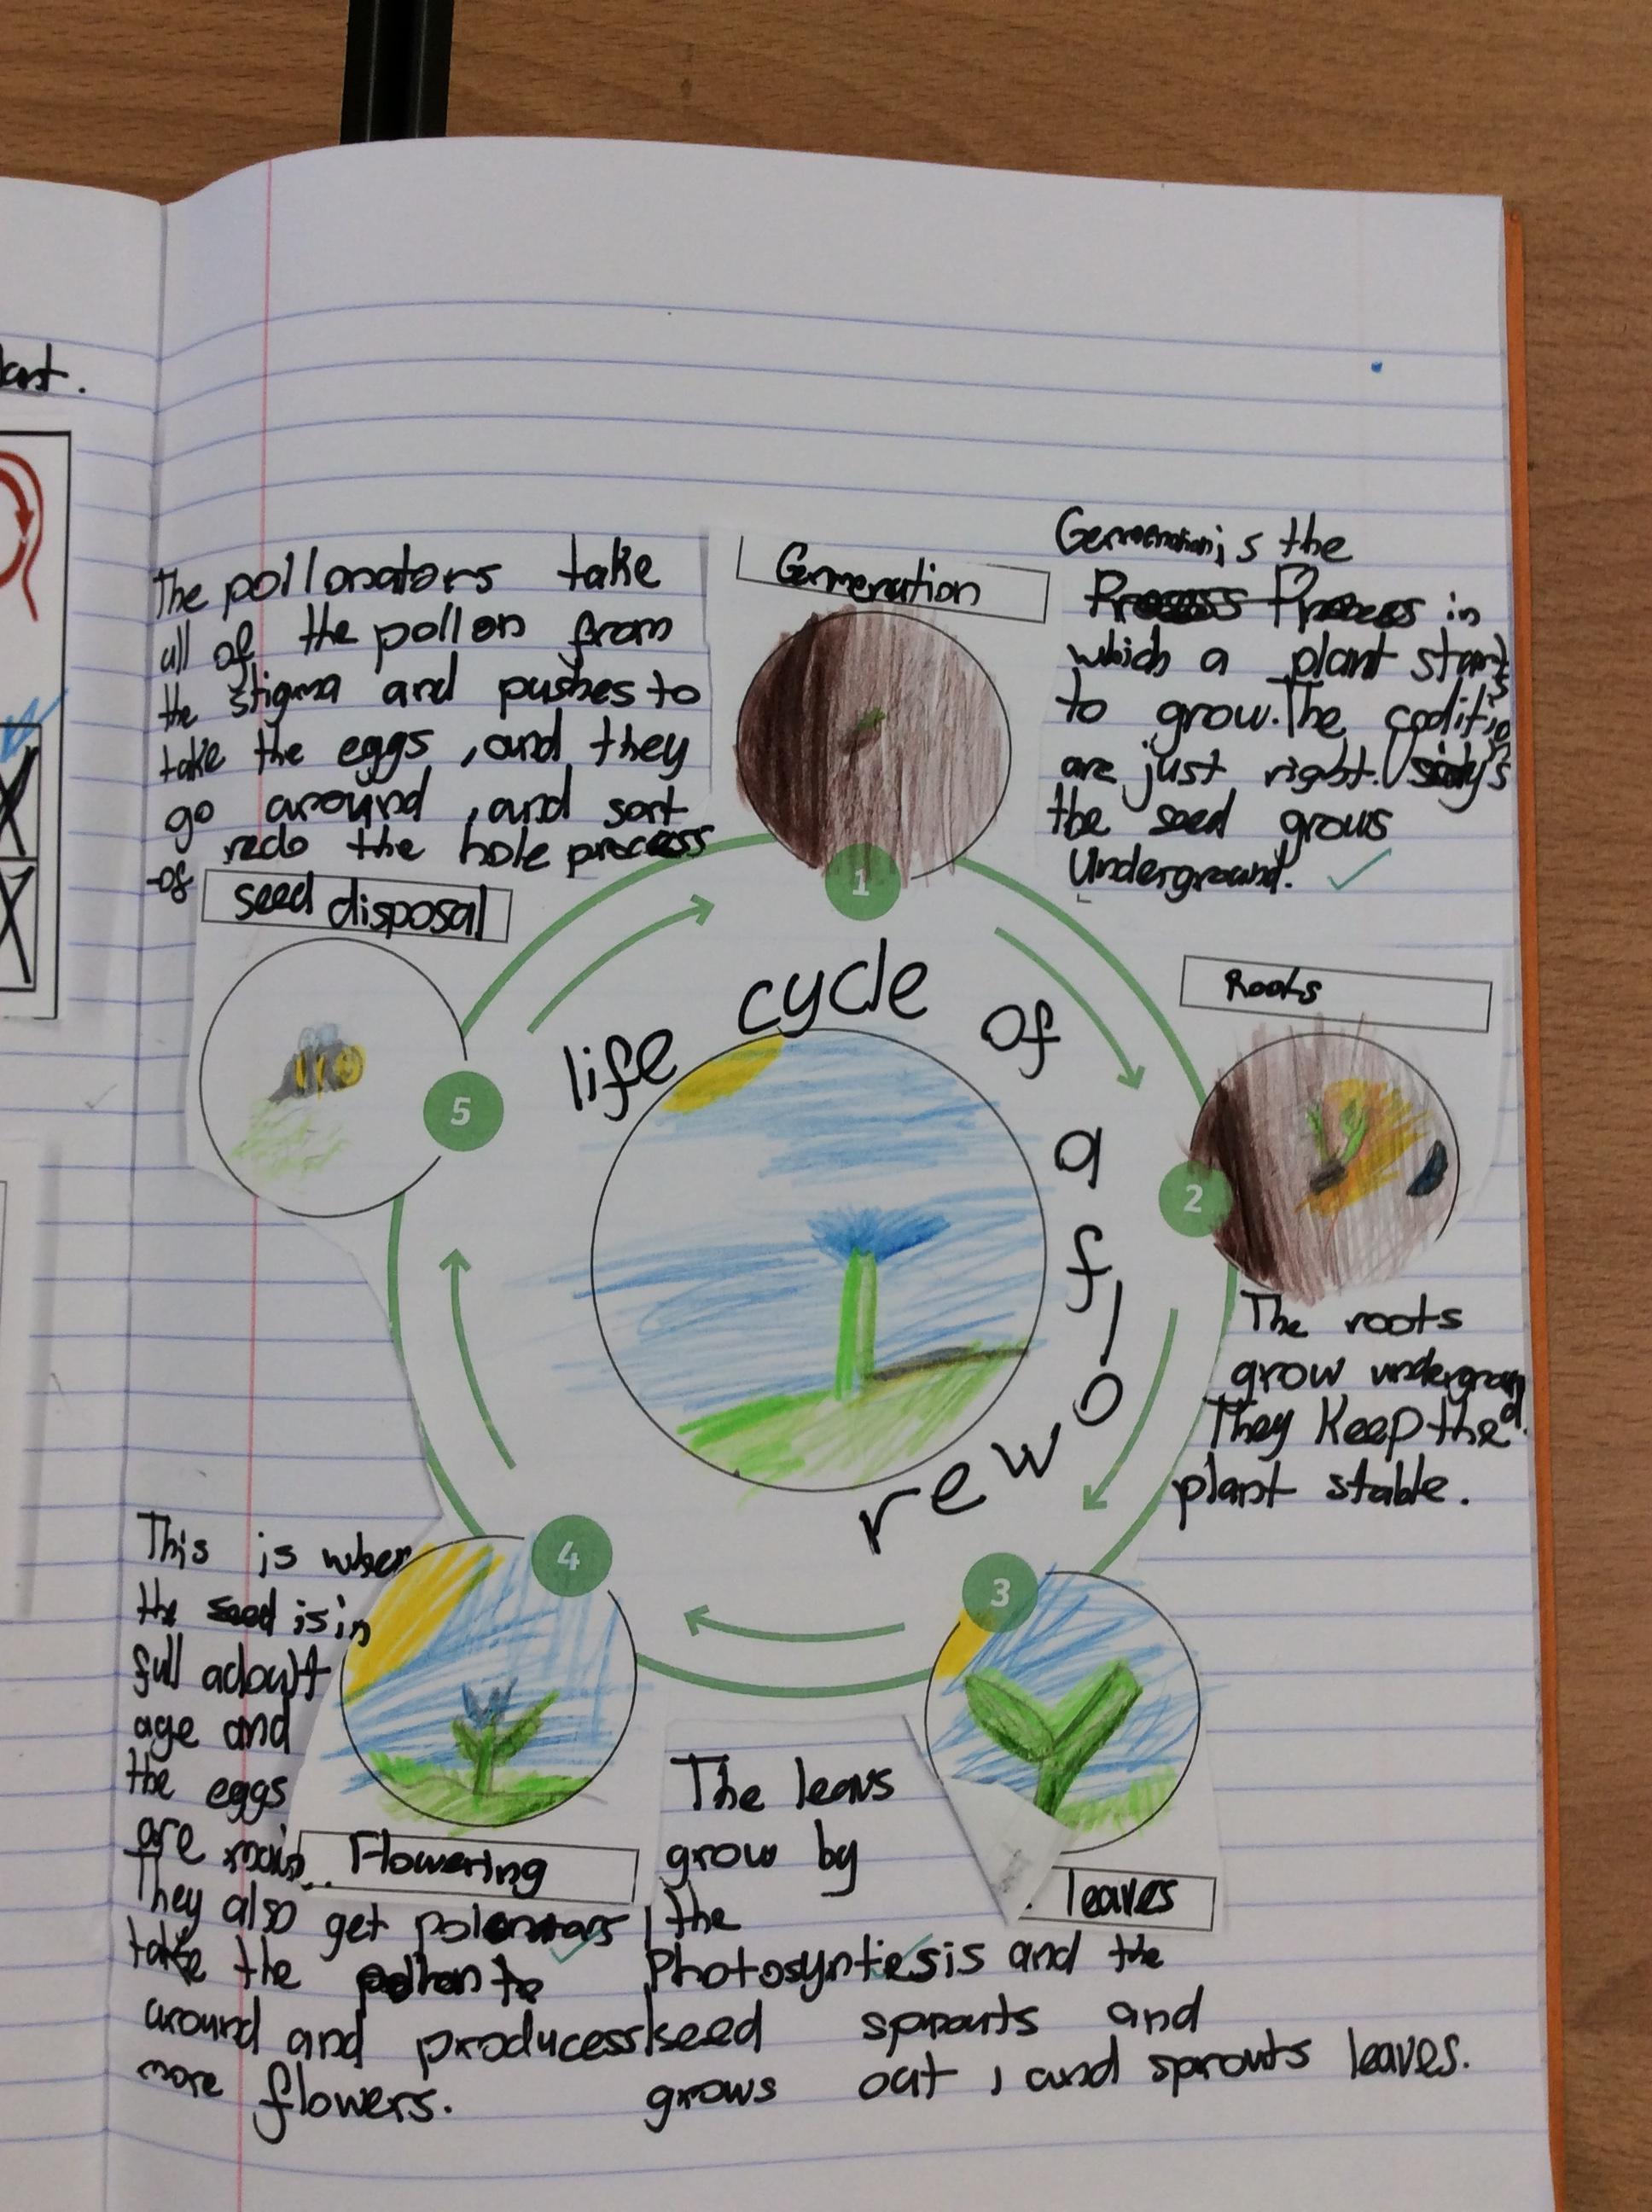 lant.
Germenation
Germenation is the
Process Process in
which a plant starts
to grow. The coditio
are just right. Usialy's
the seed grows
Underground.
1
Roots
2
The roots
grow underground.
They Keep the
plant stable.
3
leaves
The leavs
grow by
the
Photosyntiesis and the
seed sprouts and
grows out , and sprouts leaves.
4
Flowering
This is when
the seed is in
full adoult
age and
the eggs
are
They also get polonators
take the pollen to
around and producess
more flowers.
5
seed disposal
The pollonators take
all of the pollon from
the stigma and pushes to
take the eggs , and they
go around , and sort
of redo the hole process
life cycle of a flower